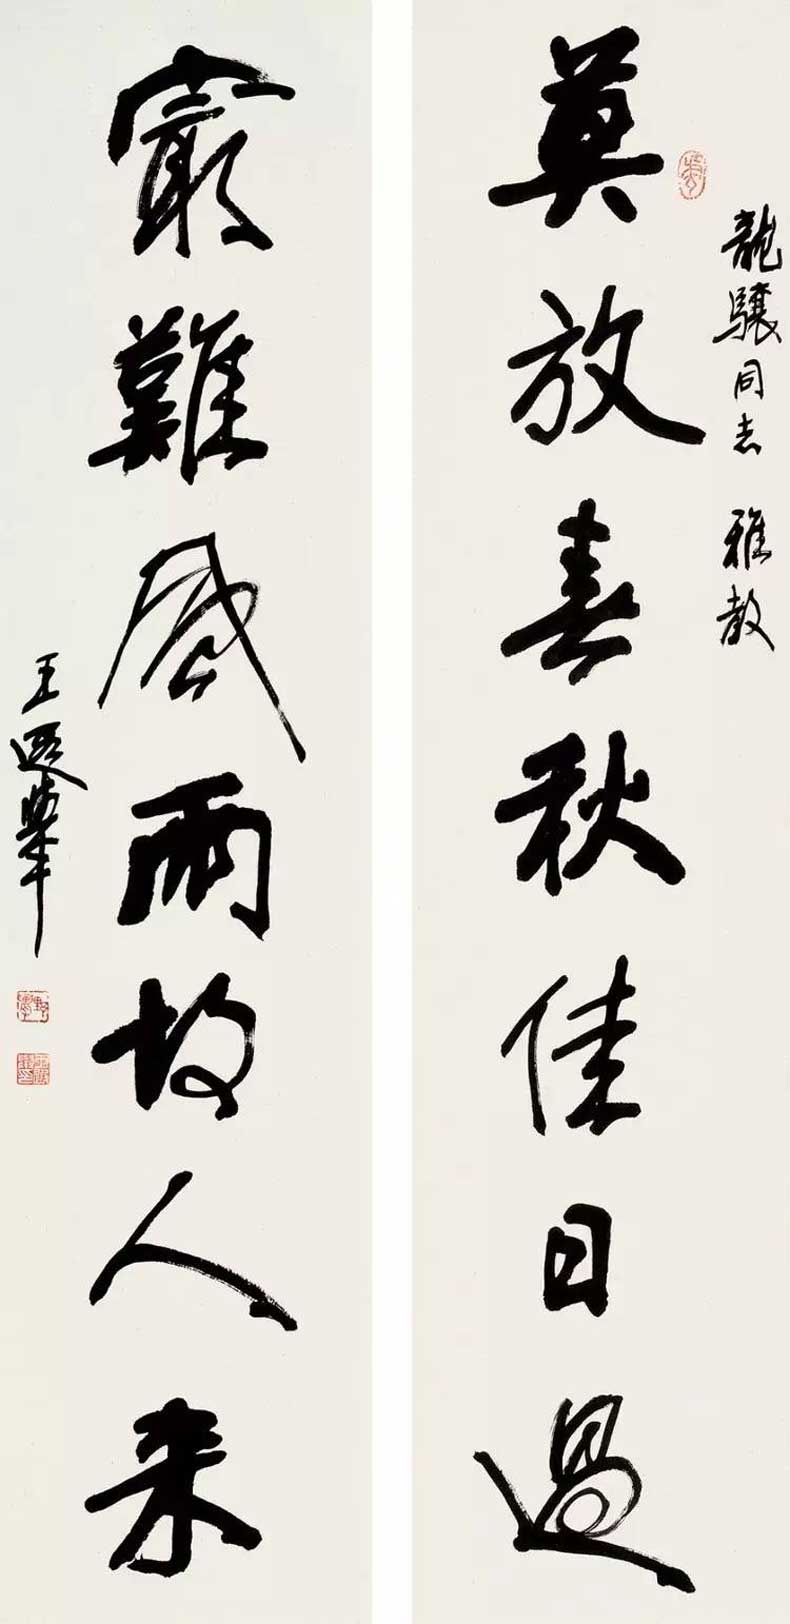 龍驤同志 雅教
莫放春秋佳日過
最難風雨故人来
王遐舉